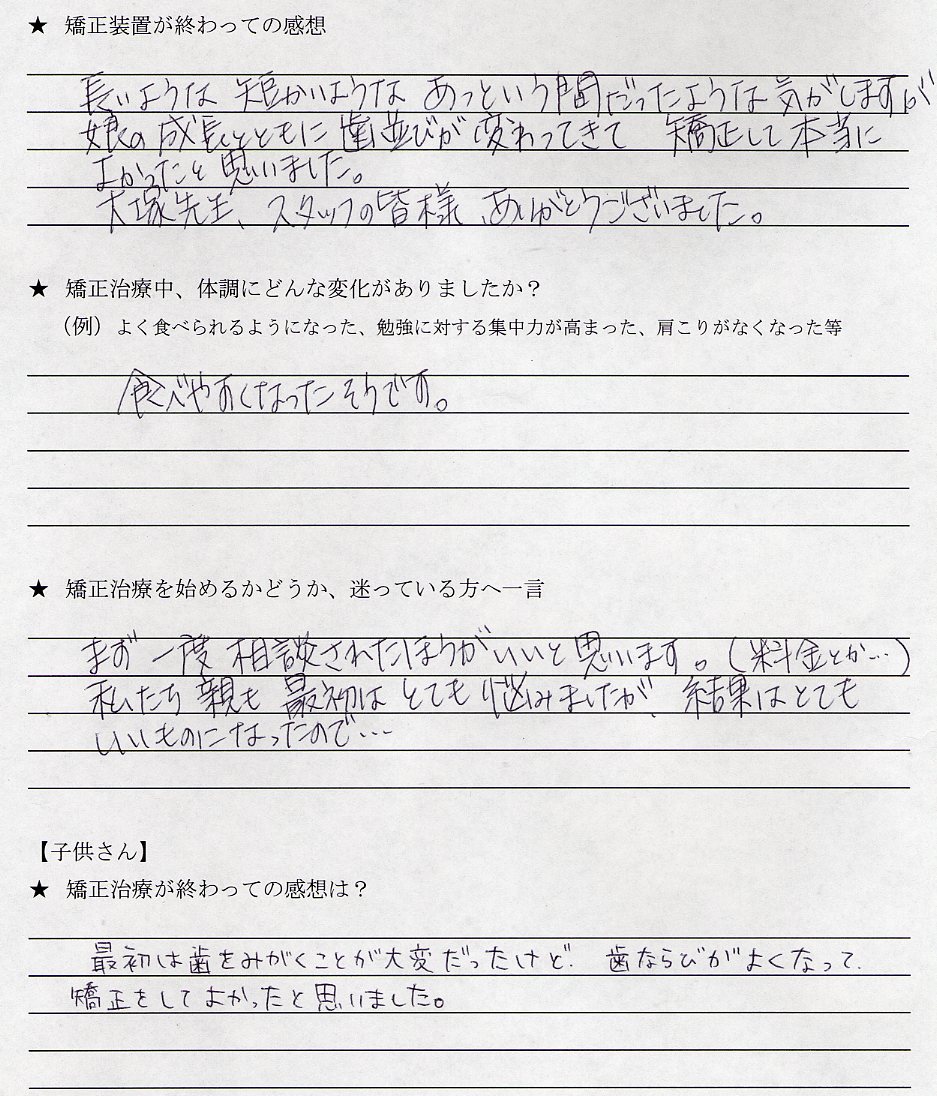 ★ 矯正装置が終わっての感想
長いような 短かいような あっという間だったような気がしますが
娘の成長とともに 歯並びが 変わってきて 矯正して本当に
よかったと思いました。
大塚先生、スタッフの皆様、ありがとうございました。
★ 矯正治療中、体調にどんな変化がありましたか？
（例）よく食べられるようになった、勉強に対する集中力が高まった、肩こりがなくなった等
食べやすくなったそうです。
★ 矯正治療を始めるかどうか、迷っている方へ一言
まず 一度 相談されたほうがいいと 思います。（料金とか…）
私たち 親も 最初は とても 悩みましたが、結果はとても
いいものになったので…
【子供さん】
★ 矯正治療が終わっての感想は？
最初は歯をみがくことが大変だったけど、歯ならびがよくなって、
矯正をしてよかったと思いました。